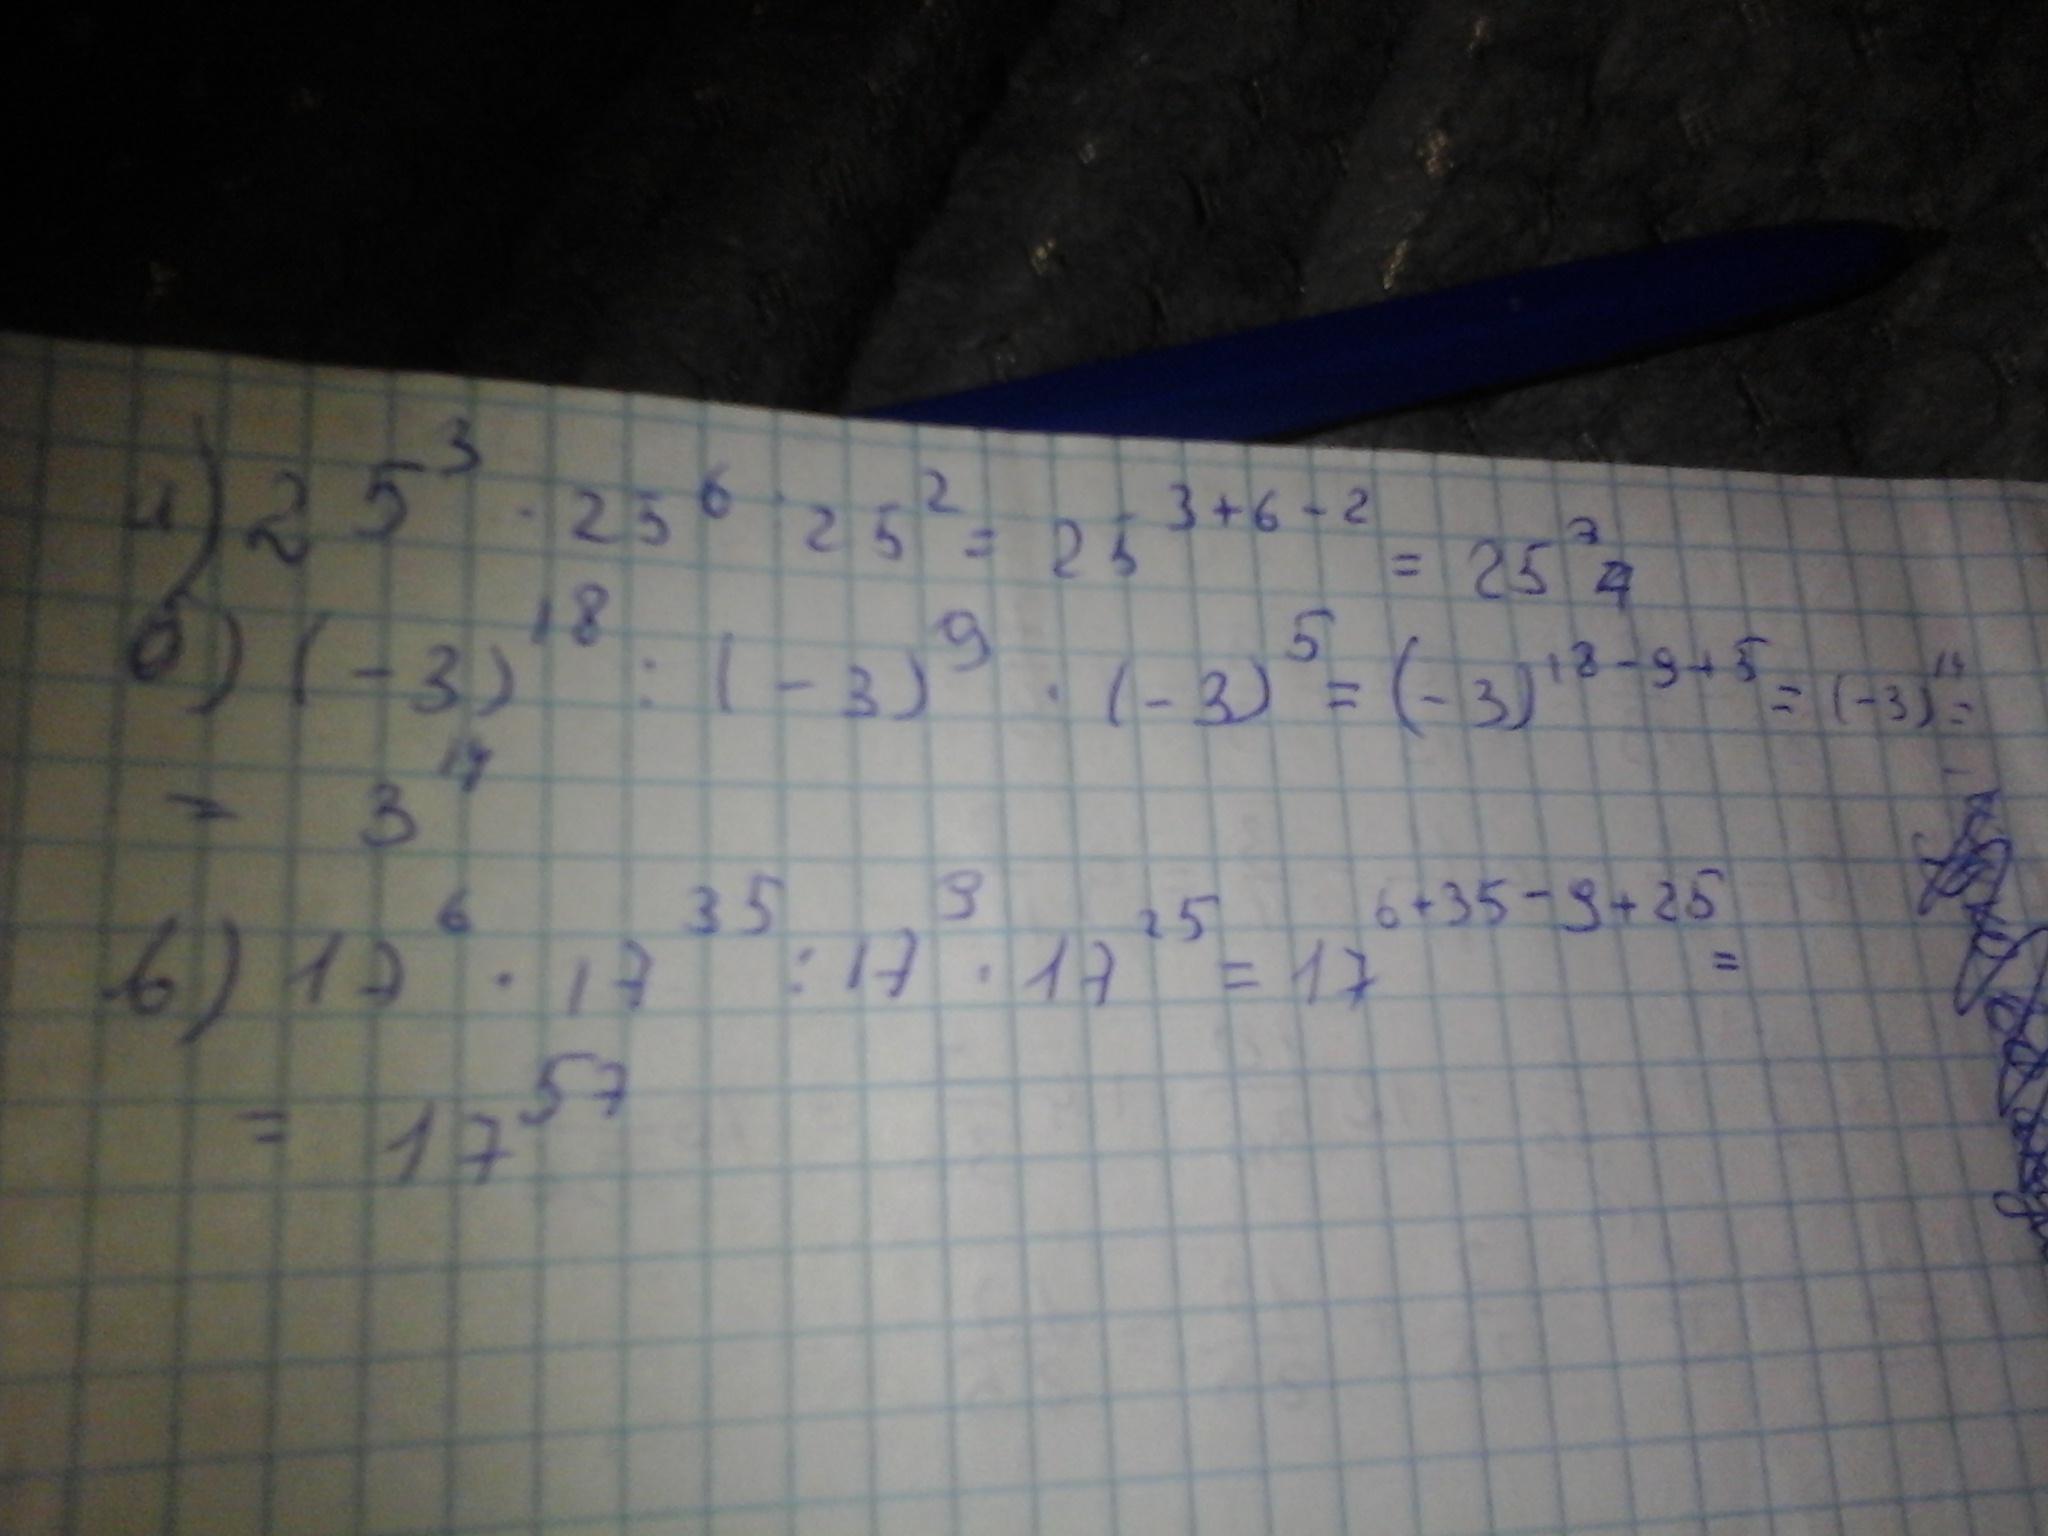 а) 25³ · 25⁶ : 25² = 25³⁺⁶⁻² = 25⁷
б) (-3)¹⁸ : (-3)⁹ · (-3)⁵ = (-3)¹⁸⁻⁹⁺⁵ = (-3)¹⁴ =
= 3¹⁴
в) 17⁶ · 17³⁵ : 17⁹ · 17²⁵ = 17⁶⁺³⁵⁻⁹⁺²⁵ =
= 17⁵⁷